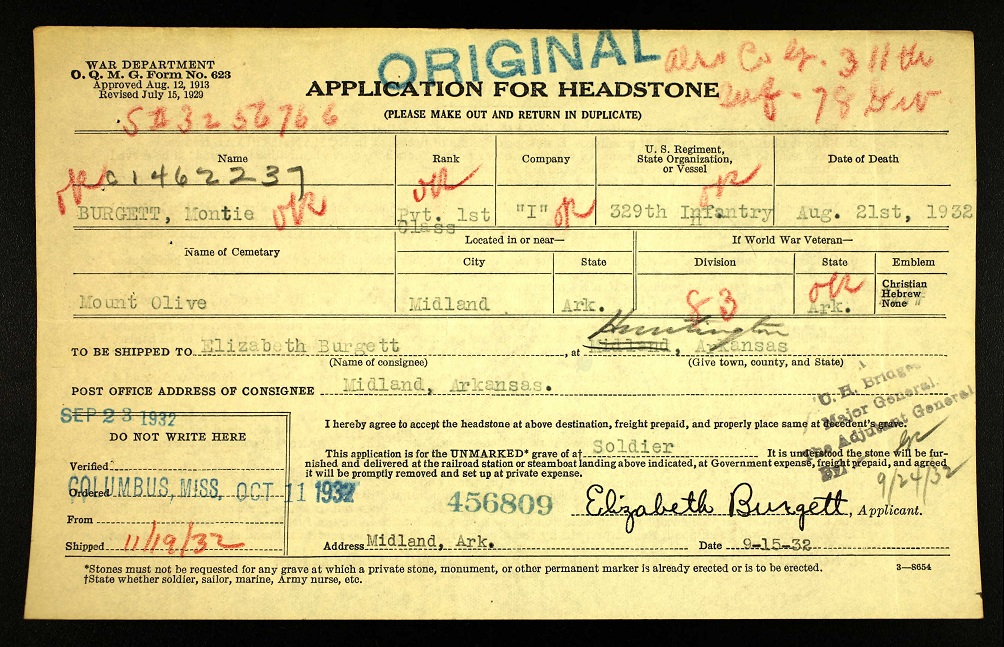 ORIGINAL
also Co G. 311th
Inf - 78 Div
WAR DEPARTMENT
O. Q. M. G. Form No. 623
Approved Aug. 12, 1913
Revised July 15, 1929
APPLICATION FOR HEADSTONE
(PLEASE MAKE OUT AND RETURN IN DUPLICATE)
3256766
Name Rank Company U. S. Regiment, State Organization, or Vessel Date of Death
C1462237
ok ok ok ok ok
BURGETT, Montie Pvt. 1st Class "I" 329th Infantry Aug. 21st, 1932
Name of Cemetary Located in or near— If World War Veteran—
City State Division State Emblem
Christian
Hebrew
None
Mount Olive Midland Ark. 83 ok Ark.
Huntington
TO BE SHIPPED TO Elizabeth Burgett, at Midland, Arkansas
(Name of consignee) (Give town, county, and State)
POST OFFICE ADDRESS OF CONSIGNEE Midland, Arkansas.
C. H. Bridges
Major General,
The Adjutant General
BY
9/24/32
SEP 23 1932
DO NOT WRITE HERE
Verified
Ordered
COLUMBUS, MISS. OCT 11 1932
From
Shipped 11/19/32
I hereby agree to accept the headstone at above destination, freight prepaid, and properly place same at decedent's grave.
This application is for the UNMARKED* grave of a† Soldier. It is understood the stone will be fur-
nished and delivered at the railroad station or steamboat landing above indicated, at Government expense, freight prepaid, and agreed
it will be promptly removed and set up at private expense.
456809 Elizabeth Burgett, Applicant.
Address Midland, Ark. Date 9-15-32
*Stones must not be requested for any grave at which a private stone, monument, or other permanent marker is already erected or is to be erected. 3—8654
†State whether soldier, sailor, marine, Army nurse, etc.